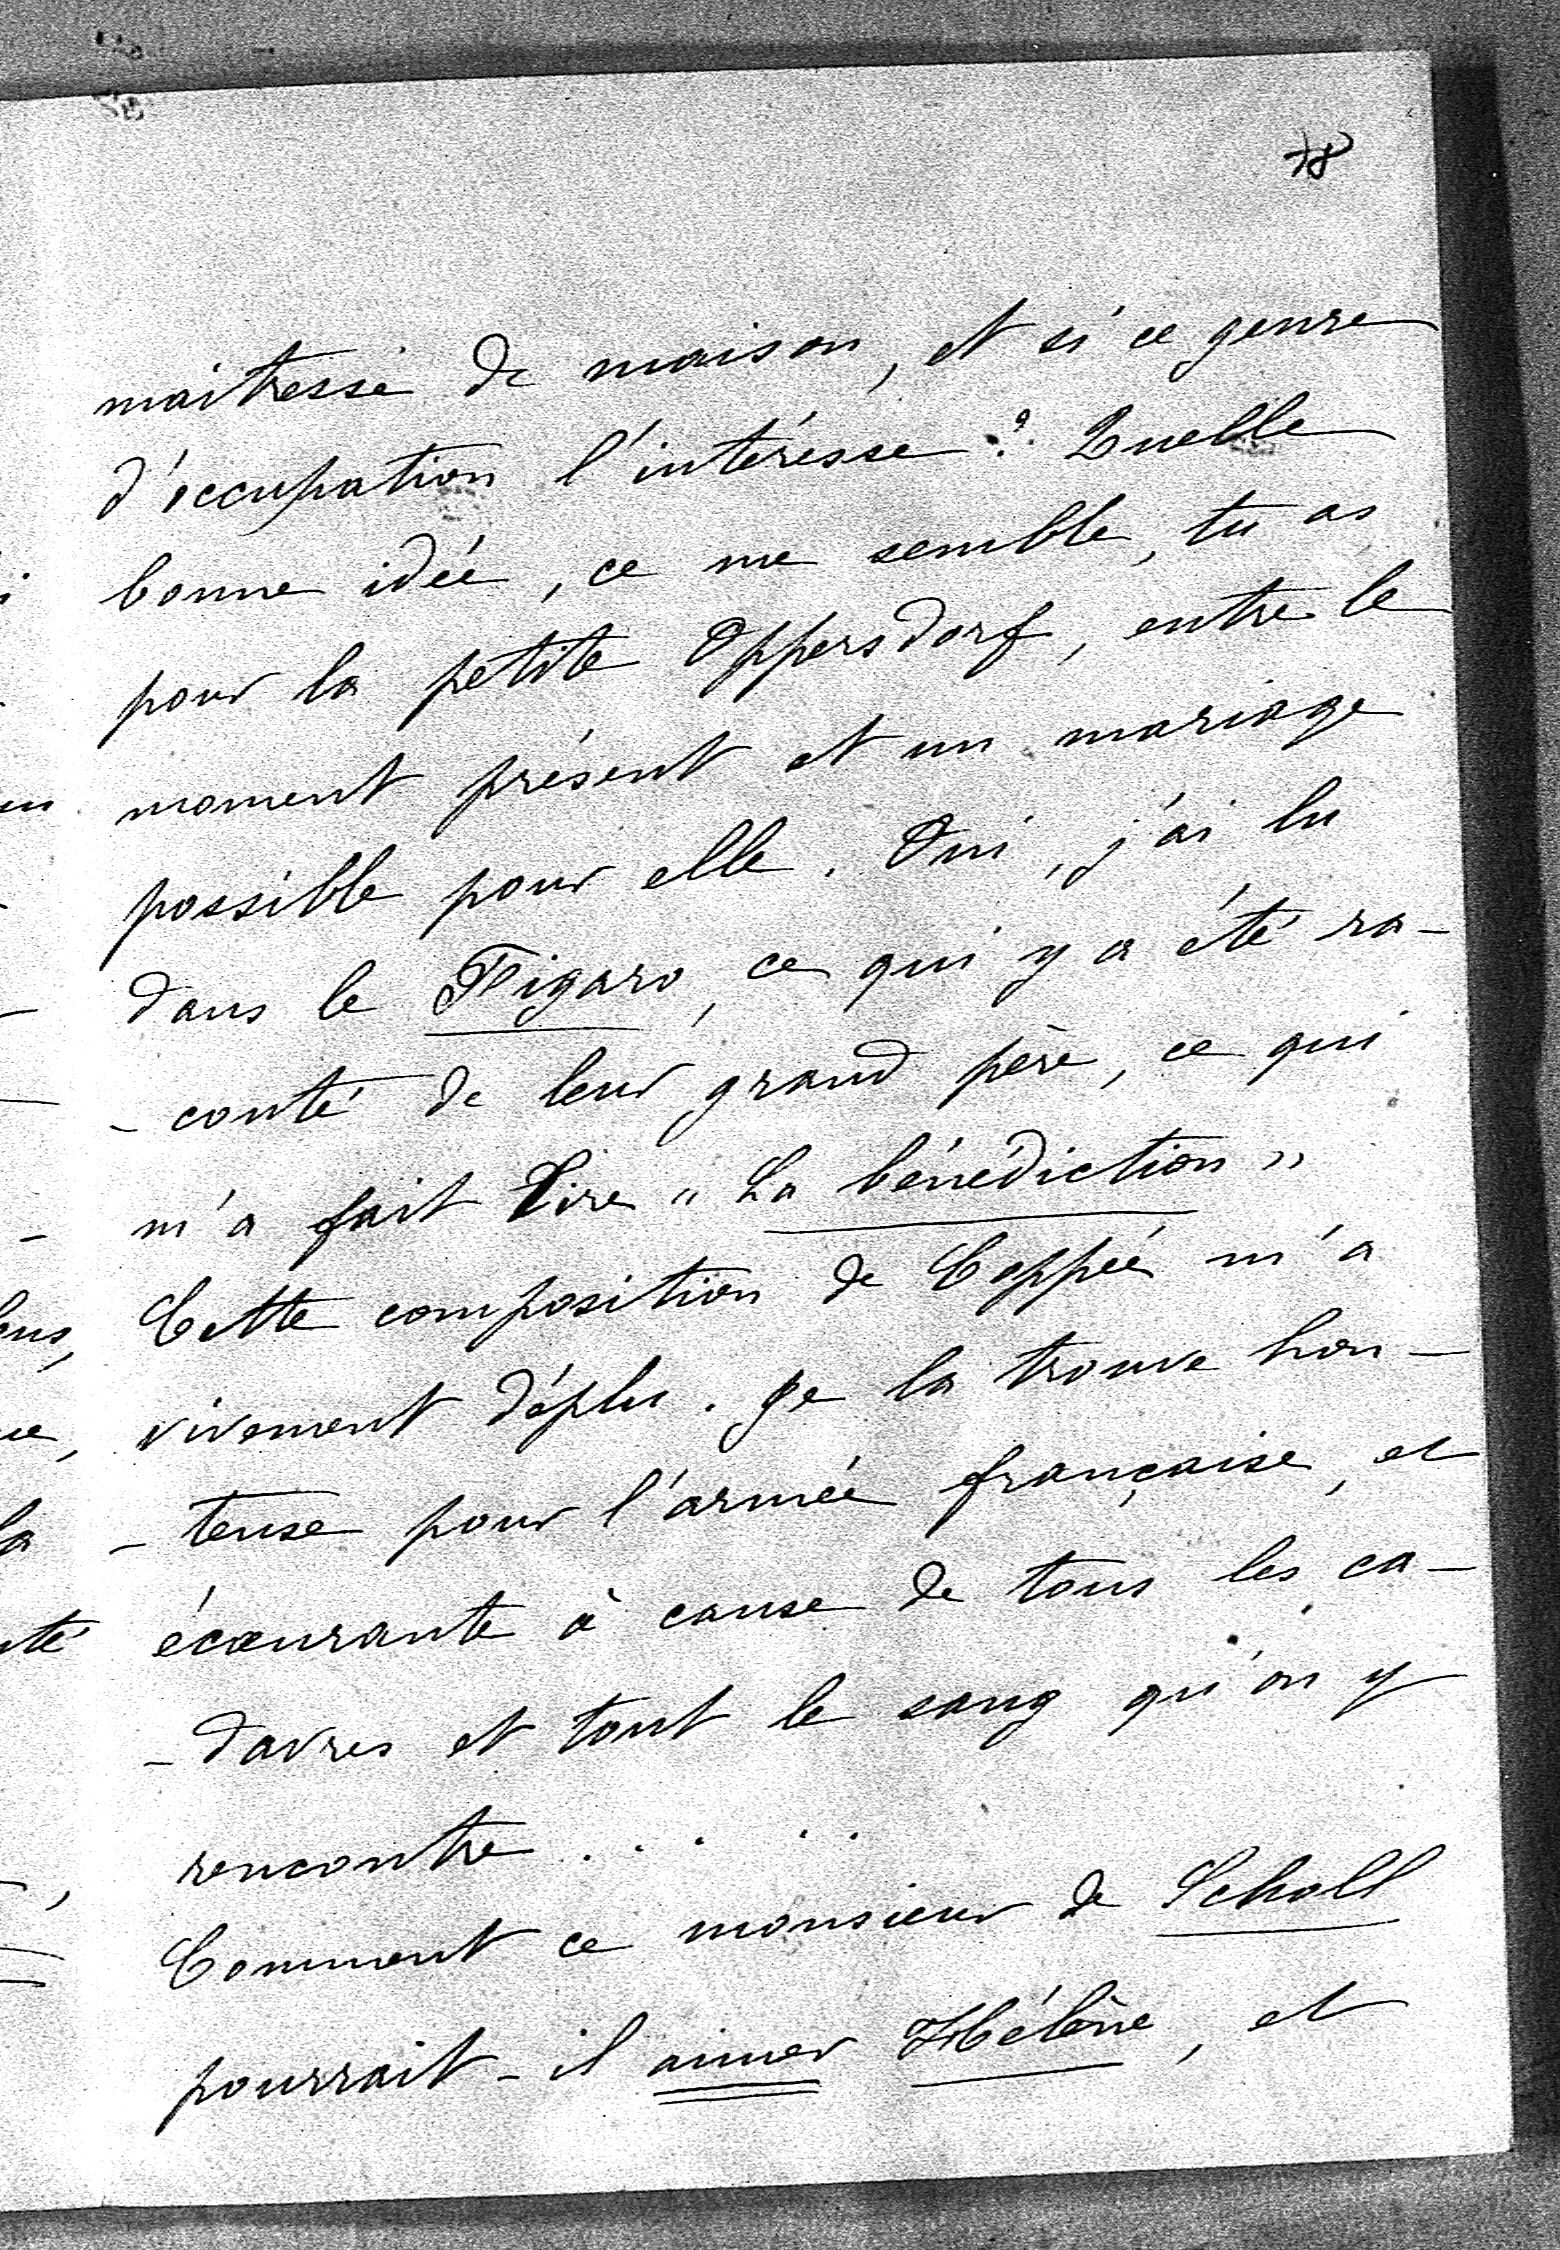 78
maîtresse de maison, et si ce genre
d'occupation l'intéresse ? Quelle
bonne idée, ce me semble, tu as
pour la petite Oppersdorf, entre le
moment présent et un mariage
possible pour elle. Oui, j'ai lu
dans le Figaro, ce qui y a été ra-
- conté de leur grand père, ce qui
m'a fait lire " La bénédiction "
Cette composition de Coppée m'a
vivement déplu. Je la trouve hon-
- teuse pour l'armée française, et
écœurante à cause de tous les ca-
- davres et tout le sang qu'on y
rencontre . . . . .
Comment ce monsieur de Scholl
pourrait-il aimer Hélène, et